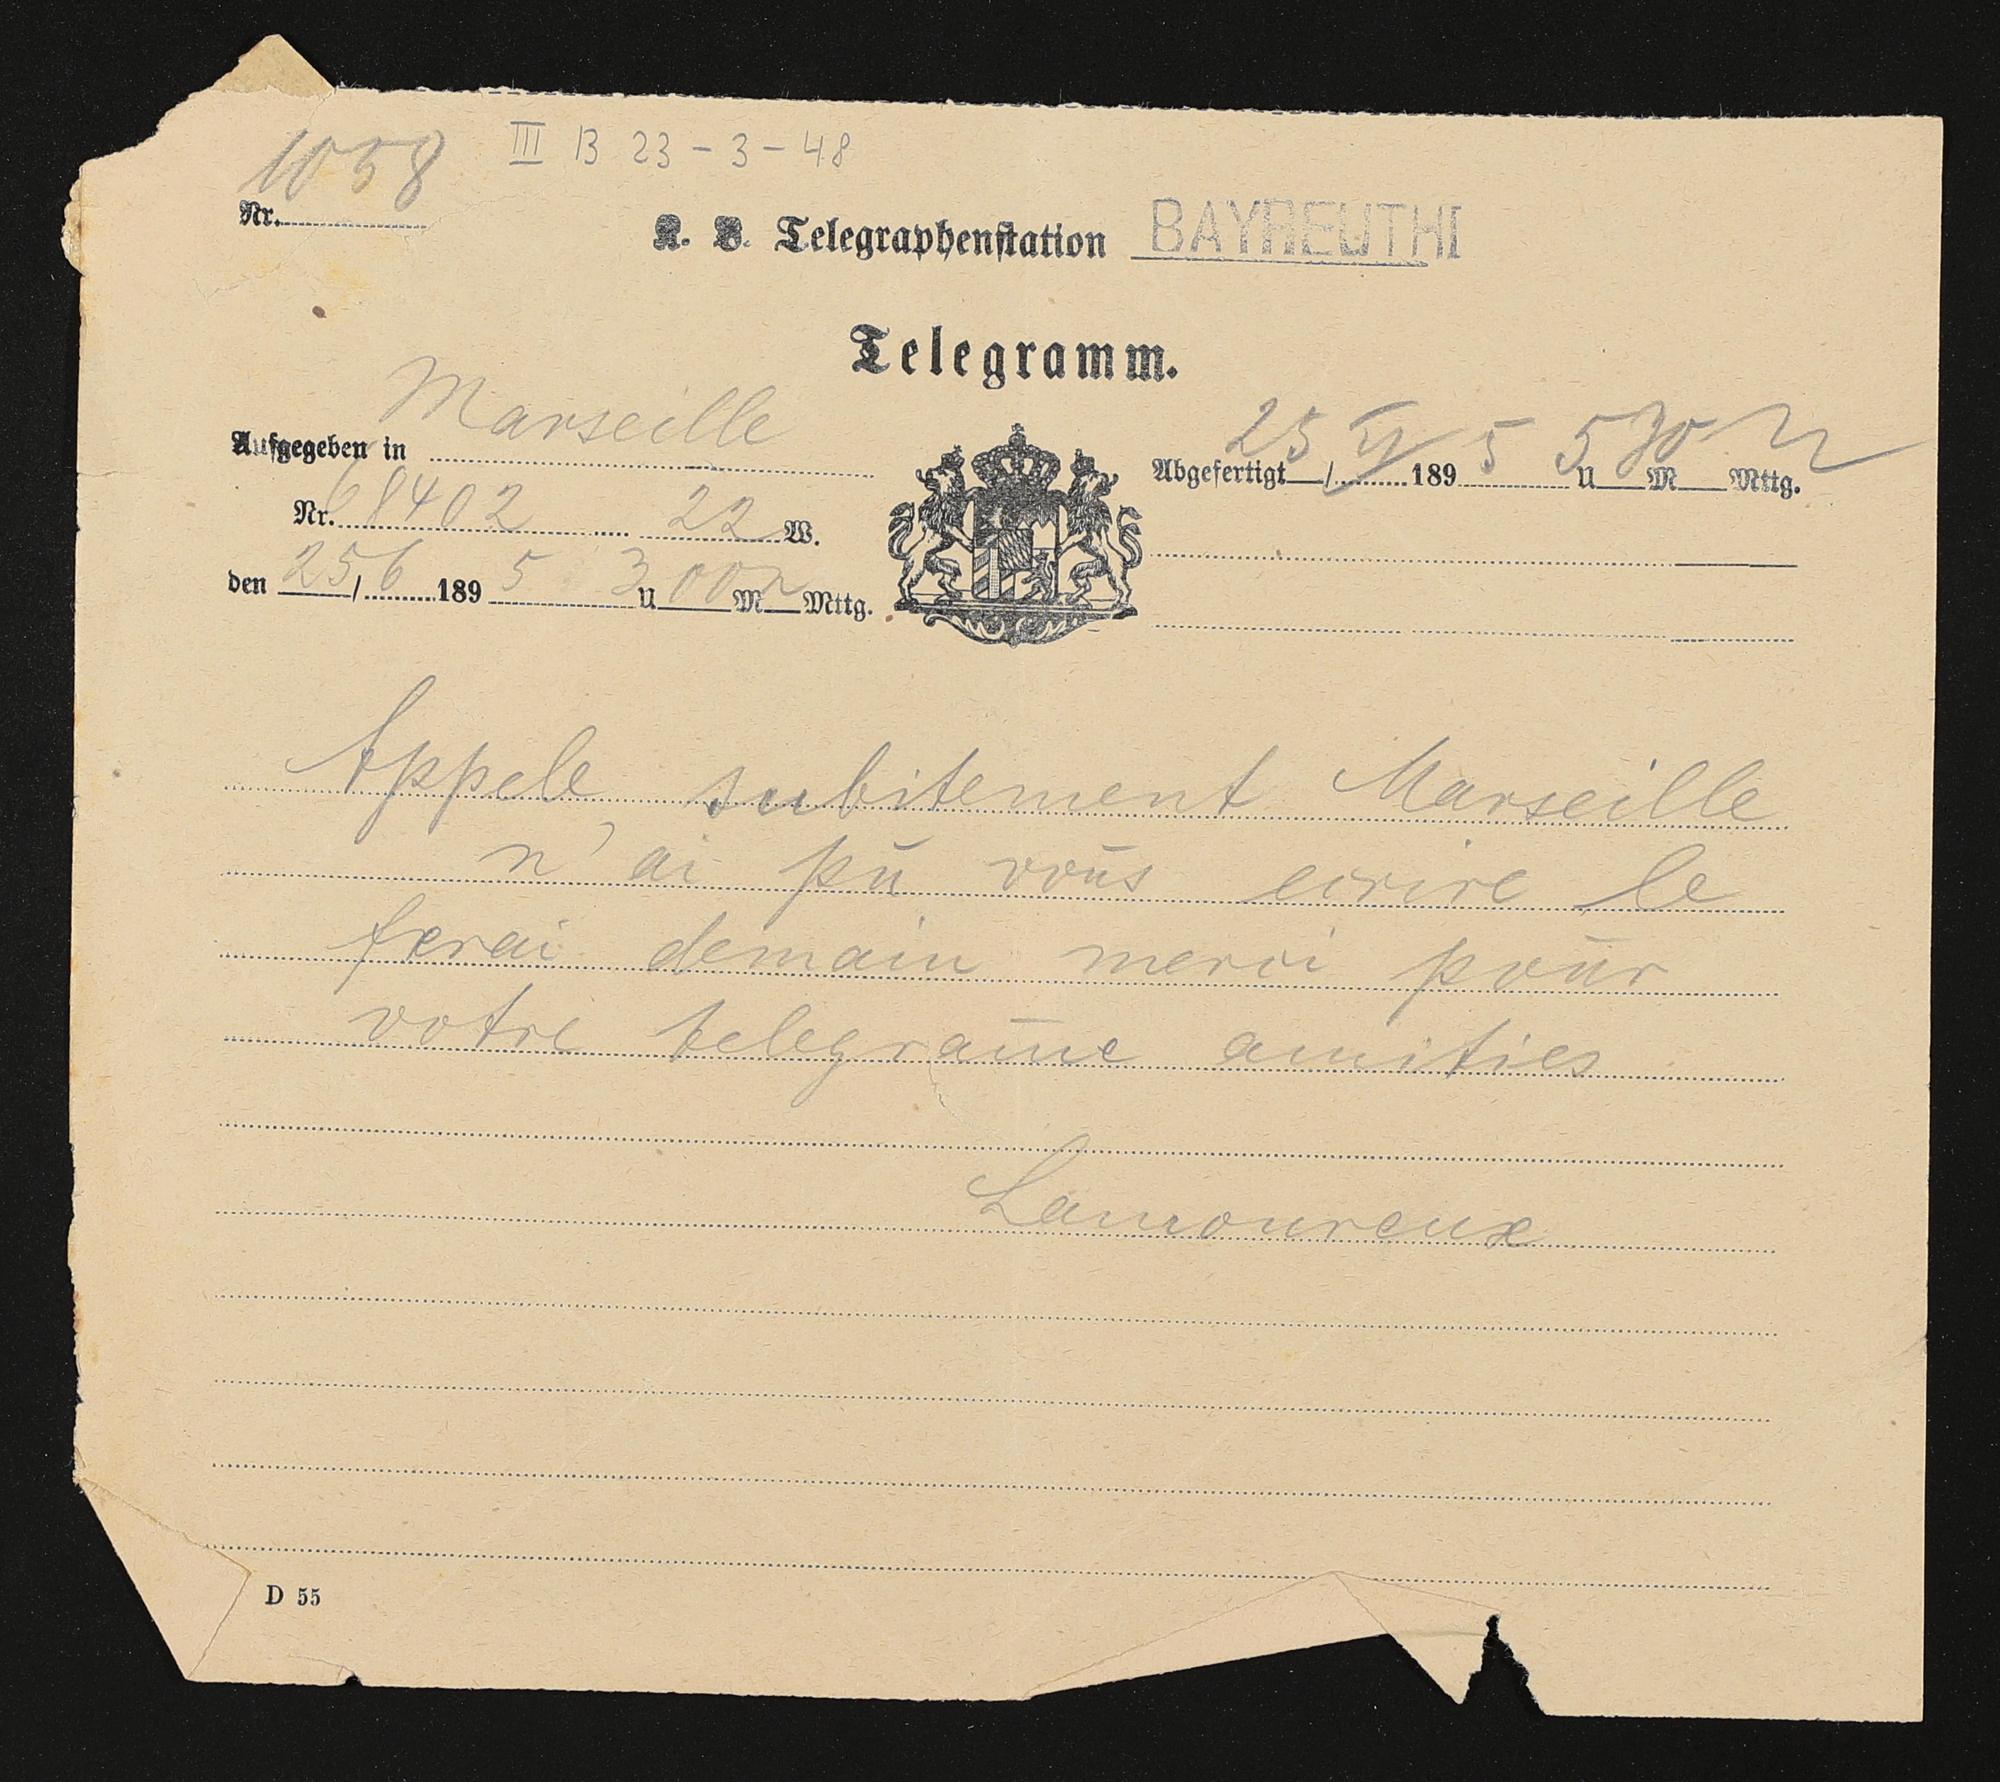 1058
III B 23-3-48
Nr.
K. B. Telegraphenstation BAYREUTH I
Telegramm.
Aufgegeben in Marseille
Nr. 68402 22 W.
den 25/6 1895 3 U 00 M n Mttg.
Abgefertigt 25/VI 1895 5 U 30 M n Mttg.
Appele subitement Marseille
n'ai pu vous ecrire le
ferai demain merci pour
votre telegram̅e amities
Lamoureux
D 55